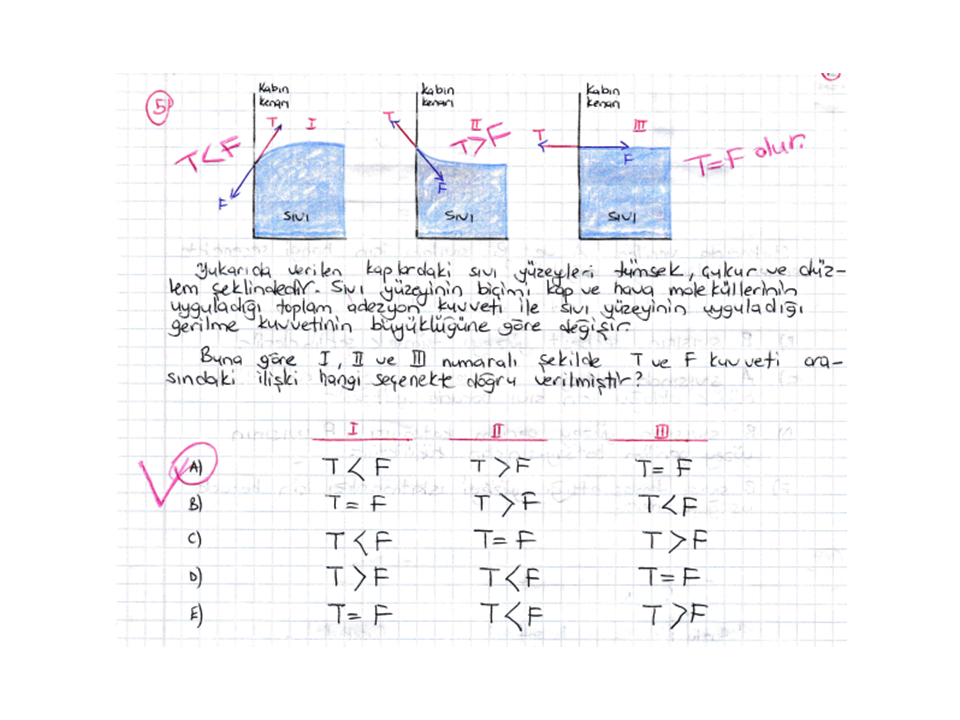 5)
Kabın Kabın Kabın
kenarı kenarı kenarı
T I T II T III
T<F T>F T=F olur.
F F F
SIVI SIVI SIVI
Yukarıda verilen kaplardaki sıvı yüzeyleri tümsek, çukur ve düz-
lem şeklindedir. Sıvı yüzeyinin biçimi kap ve hava moleküllerinin
uyguladığı toplam adezyon kuvveti ile sıvı yüzeyinin uyguladığı
gerilme kuvvetinin büyüklüğüne göre değişir.
Buna göre I, II ve III numaralı şekilde T ve F kuvveti ara-
sındaki ilişki hangi seçenekte doğru verilmiştir?
I II III
A) T<F T>F T=F
B) T=F T>F T<F
C) T<F T=F T>F
D) T>F T<F T=F
E) T=F T<F T>F